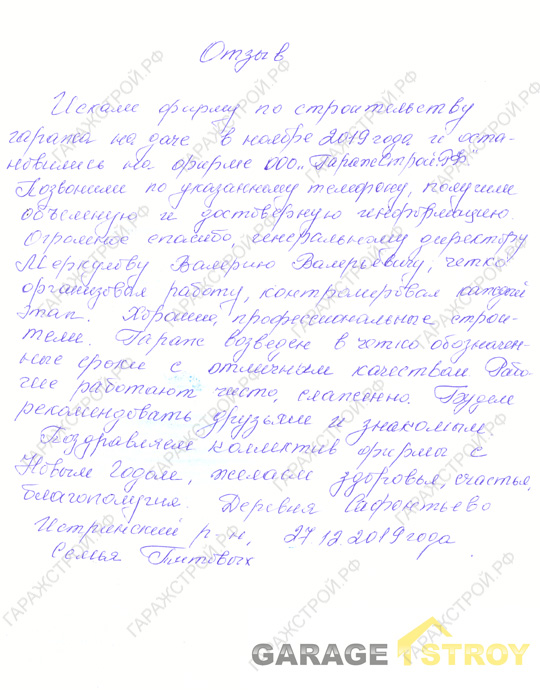 Отзыв
Искали фирму по строительству
гаража на даче в ноябре 2019 года и оста-
новились на фирме ООО „ГаражСтрой.РФ.
Позвонили по указанному телефону, получили
объемную и достоверную информацию.
Огромное спасибо, генеральному директору
Меркулову Валерию Валерьевичу, четко
организовал работу, контролировал каждый
этап. Хорошие, профессиональные строи-
тели. Гараж возведен в четко обозначен-
ные сроки с отличным качеством. Рабо-
чие работают чисто, слаженно. Будем
рекомендовать друзьям и знакомым.
Поздравляем коллектив фирмы с
Новым Годом, желаем здоровья, счастья,
благополучия. Деревня Сафонтьево
Истринский р-н, 27.12.2019 года
Семья
GARAGE STROY
ГАРАЖСТРОЙ.РФ